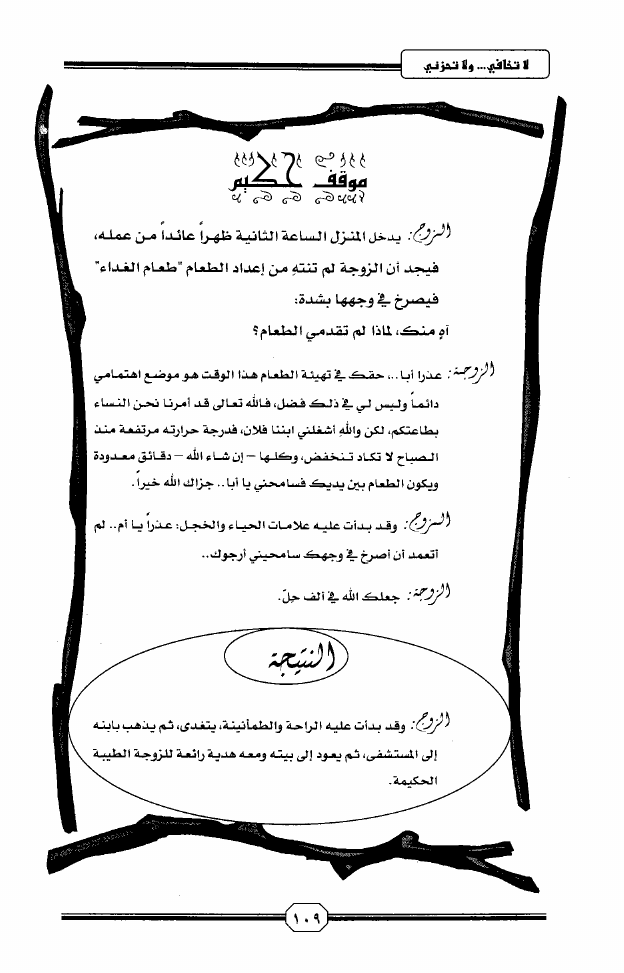 لا تخافي... ولا تحزني
موقف حكيم
الزوج: يدخل المنزل الساعة الثانية ظهراً عائداً من عمله،
فيجد أن الزوجة لم تنتهِ من إعداد الطعام "طعام الغداء"
فيصرخ في وجهها بشدة:
آهِ منك، لماذا لم تقدمي الطعام؟
الزوجة: عذرا أبا..، حقك في تهيئة الطعام هذا الوقت هو موضع اهتمامي
دائماً وليس لي في ذلك فضل، فالله تعالى قد أمرنا نحن النساء
بطاعتكم، لكن واللهِ أشغلني ابننا فلان، فدرجة حرارته مرتفعة منذ
الصباح لا تكاد تنخفض، وكلها – إن شاء الله – دقائق معدودة
ويكون الطعام بين يديك فسامحني يا أبا.. جزاك الله خيراً.
الزوج: وقد بدأت عليه علامات الحياء والخجل: عذراً يا أم.. لم
أتعمد أن أصرخ في وجهك سامحيني أرجوك..
الزوجة: جعلك الله في ألف حلّ.
النتيجة
الزوج: وقد بدأت عليه الراحة والطمأنينة، يتغدى، ثم يذهب بابنه
إلى المستشفى، ثم يعود إلى بيته ومعه هدية رائعة للزوجة الطيبة
الحكيمة.
١٠٩